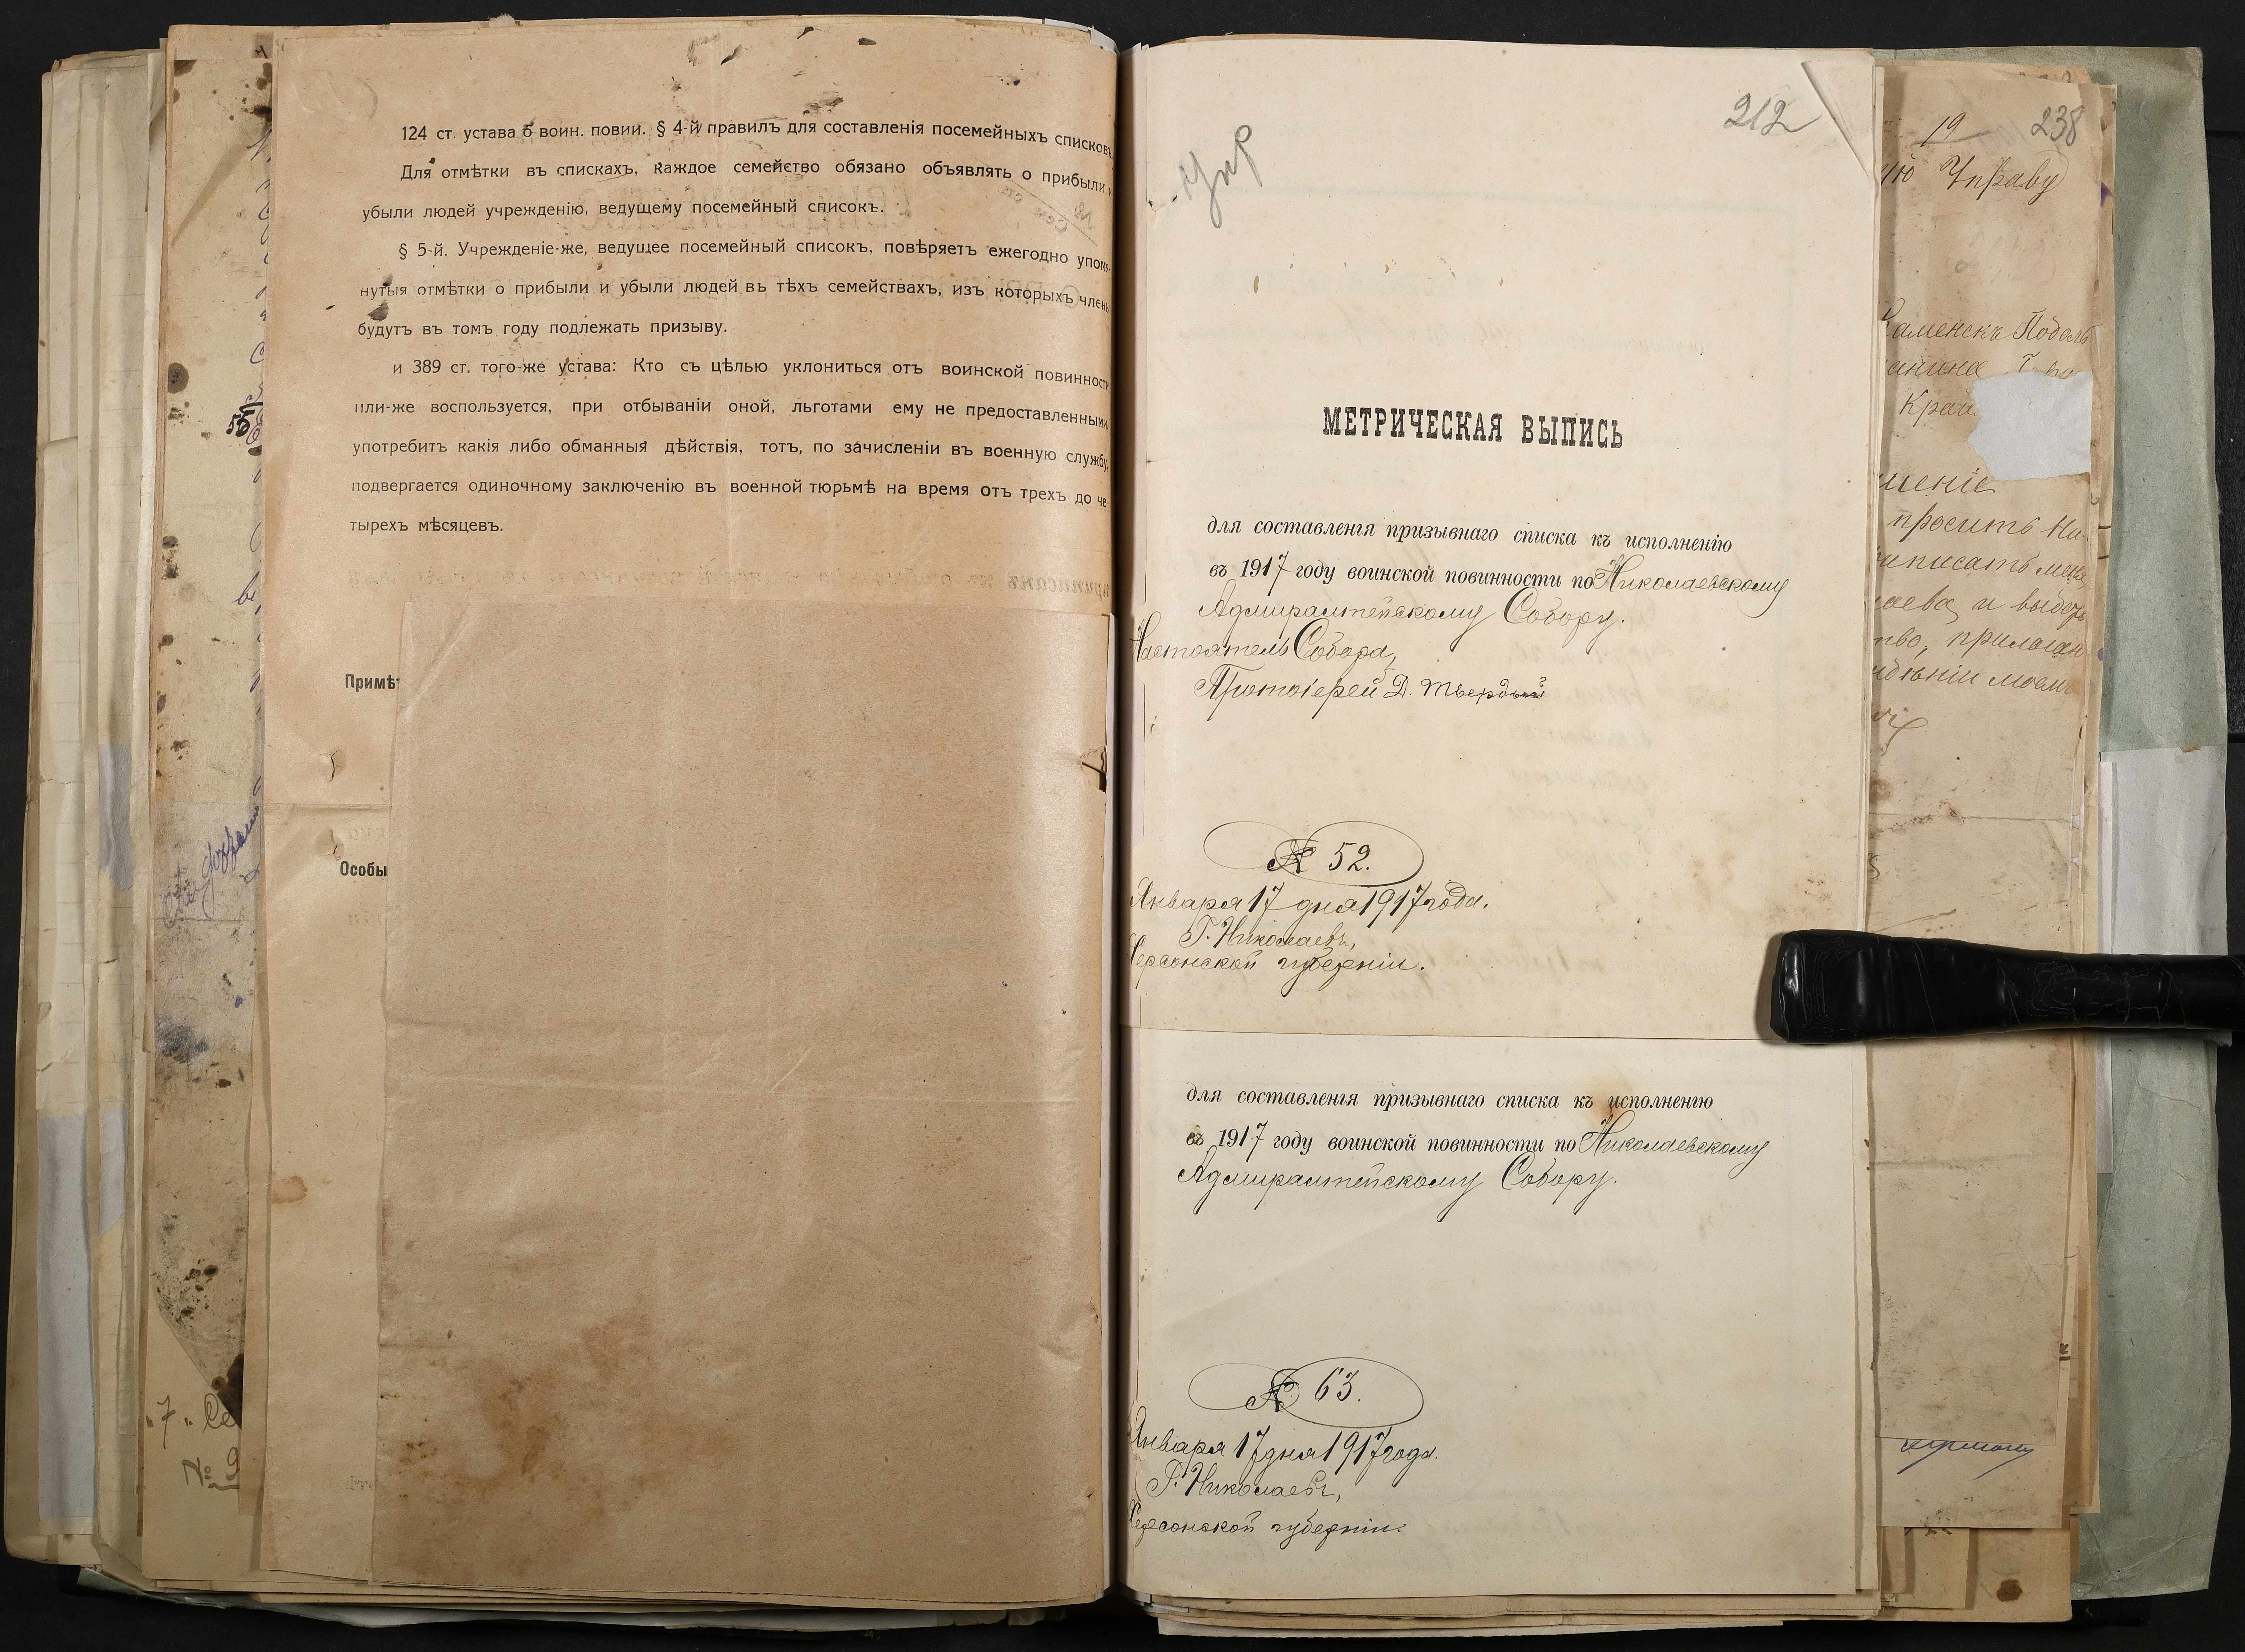 124 ст. устава о воин. повин. § 4-й правилъ для составленія посемейныхъ списковъ.
Для отмѣтки въ спискахъ, каждое семейство обязано объявлять о прибыли и
убыли людей учрежденію, ведущему посемейный списокъ.
§ 5-й. Учрежденіе-же, ведущее посемейный списокъ, повѣряетъ ежегодно упомя-
нутыя отмѣтки о прибыли и убыли людей въ тѣхъ семействахъ, изъ которыхъ члены
будутъ въ томъ году подлежать призыву.
и 389 ст. того-же устава: Кто съ цѣлью уклониться отъ воинской повинности
или-же воспользуется, при отбываніи оной, льготами ему не предоставленными,
употребитъ какія либо обманныя дѣйствія, тотъ, по зачисленіи въ военную службу,
подвергается одиночному заключенію въ военной тюрьмѣ на время отъ трехъ до че-
тырехъ мѣсяцевъ.
Примѣ
Особы
55
"7"
212
МЕТРИЧЕСКАЯ ВЫПИСЬ
для составленія призывнаго списка къ исполненію
въ 1917 году воинской повинности по Николаевскому
Адмиралтейскому Собору.
Настоятель Собора,
Протоіерей Д. Твердый
№ 52.
Января 17 дня 1917 года.
Г. Николаевъ,
Херсонской губерніи.
для составленія призывнаго списка къ исполненію
въ 1917 году воинской повинности по Николаевскому
Адмиралтейскому Собору.
№ 63.
Января 17 дня 1917 года.
Г. Николаевъ,
Херсонской губерніи.
19 238
ую Управу
Каменскъ Подоль
анина
Кран
шеніе
просить На
риписать меня
лаева, и выдать
тво, прилагаю